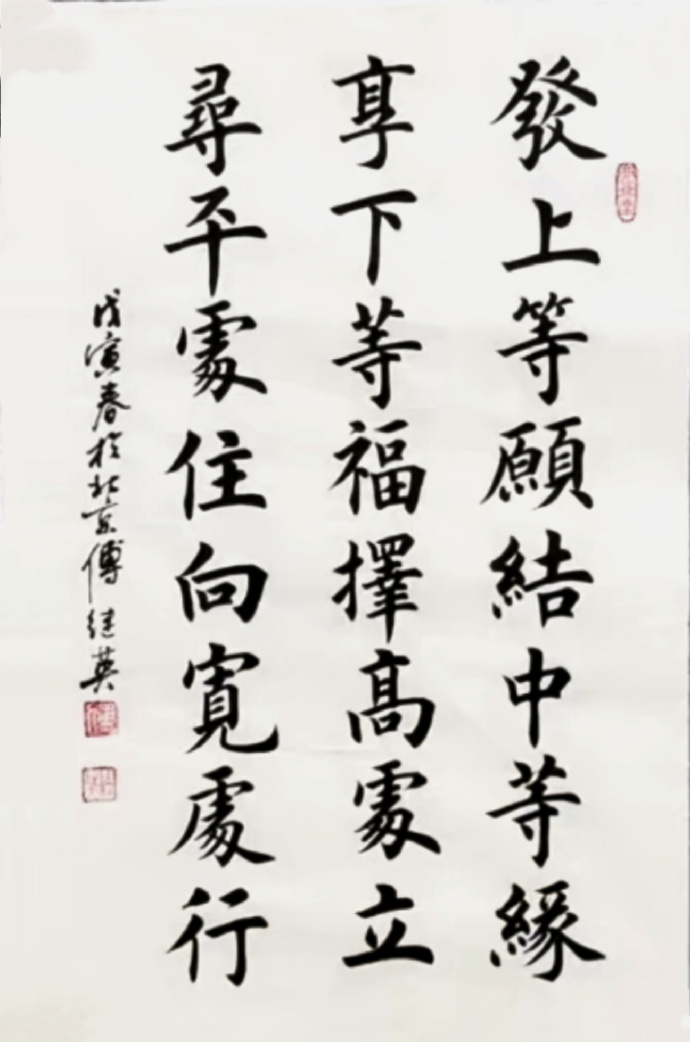 發上等願結中等緣
享下等福擇高處立
尋平處住向寬處行
戊寅春於北京傅继英